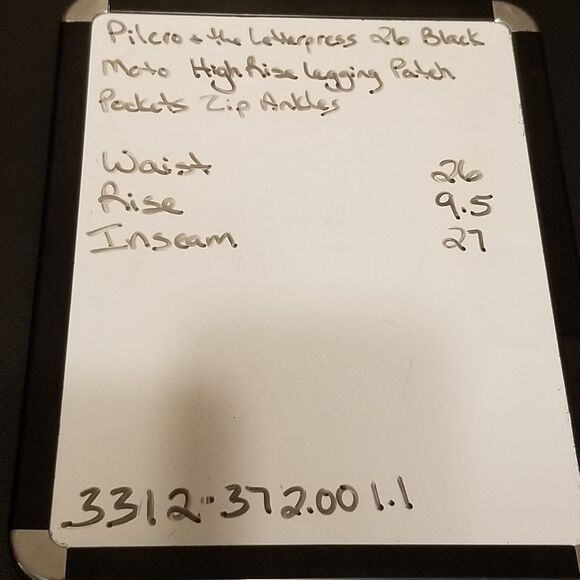 Pilcro + the Letterpress 26 Black
Moto High Rise Legging Patch
Pockets Zip Ankles
Waist 26
Rise 9.5
Inseam 27
3312-372.001.1